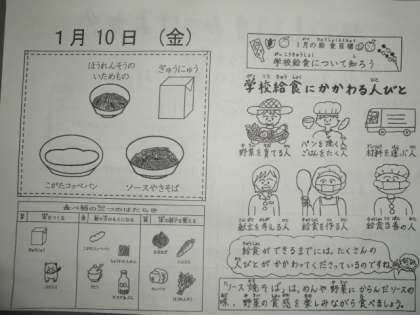 1月10日（金）
ほうれんそうの
いためもの
ぎゅうにゅう
こがたコッペパン
ソースやきそば
食べ物の三つのはたらき
1月の給食目標
学校給食について知ろう
学校給食にかかわる人びと
野菜を育てる人
パンを焼く
ごはんをたく人
材料を運ぶ人
献立を考える人
給食を作る人
給食当番の人
給食ができるまでには、たくさんの
人びとがかかわってくださっているのですね。
「ソース焼きそば」は、めんや野菜にからんだソースの
味、野菜の食感を楽しみながら食べましょう。